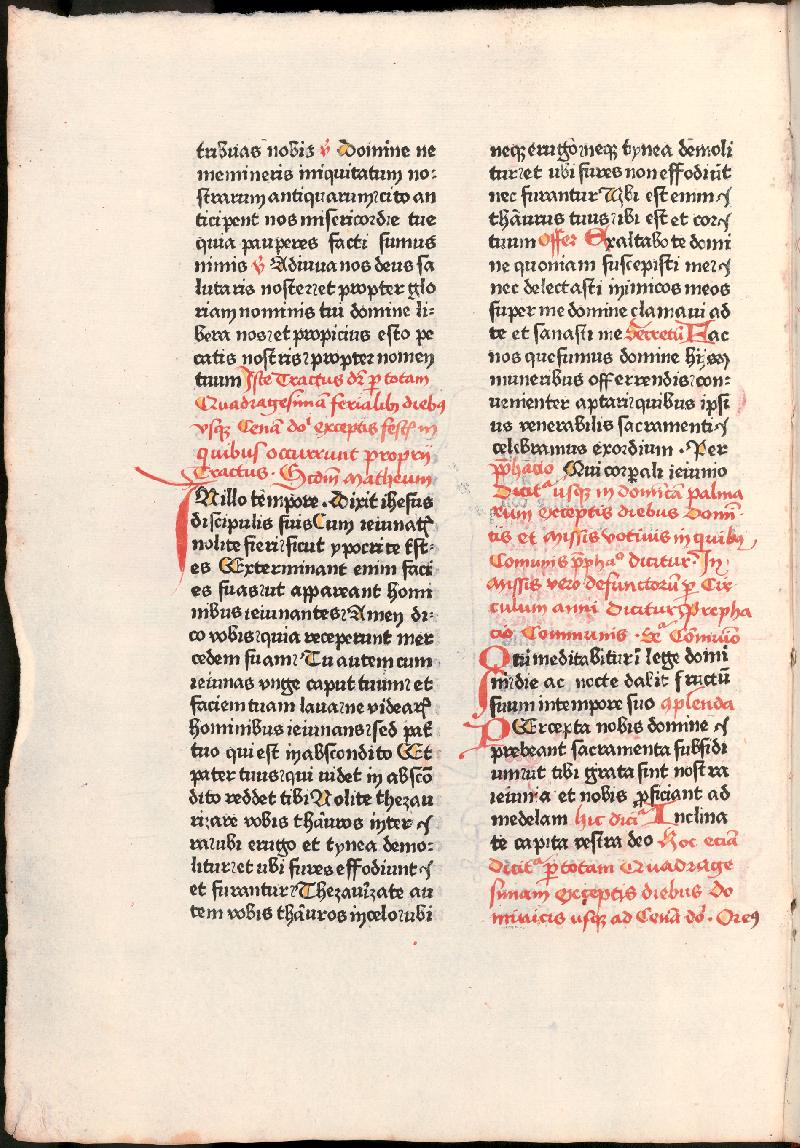 tribuas nobis v̄ Domine ne
memineris iniquitatum no⸗
strarum antiquarum: cito an
ticipent nos misericordie tue
quia pauperes facti sumus
nimis v̄ Adiuua nos deus sa
lutaris noster: et propter glo
riam nominis tui domine li⸗
bera nos: et propicius esto pe
catis nostris: propter nomen
tuum Iste Tractus dr̄ ꝑ totam
Quadragesimā ferialibꝰ diebꝰ
vsqꝫ Cenā do᷑ exceptis festꝭ in
quibus occurrunt proprij
Tractus. Scd̄m Matheum
IN illo tempore. Dixit ihesus
discipulis suis Cum ieiunatꝭ
nolite fieri: sicut ypocrite trist⸗
es Exterminant enim faci
es suas: ut appareant homi
nibus ieiunantes: Amen di⸗
co vobis: quia receperunt mer
cedem suam: Tu autem cum
ieiunas vnge caput tuum: et
faciem tuam laua: ne videarꝭ
hominibus ieiunans: sed pat̄
tuo qui est in abscondito Et
pater tuus: qui uidet in abscō
dito reddet tibi Nolite thezau
rizare vobis thāuros in ter⸗
ra: ubi erugo et tynea demo⸗
litur: et ubi fures effodiunt
et furantur: Thezaurizate au
tem vobis thāuros in celo: ubi
neqꝫ erugo: neqꝫ tynea demoli
tur: et ubi fures non effodiūt
nec furantur Ubi est enim
thāurus tuus: ibi est et cor
tuum Offer Exaltabo te domi
ne quoniam suscepisti me:
nec delectasti inimicos meos
super me domine clamaui ad
te et sanasti me Secretū Fac
nos quesumus domine hijs
muneribus offerrendis: con⸗
uenienter aptari: quibus ipsi
us venerabilis sacramenti
celebramus exordium. Per
p̄phacio Qui corpali ieiunio
Dicitᵃ usqꝫ in domīcā palma
rum exceptis diebus Domī⸗
cis et missis votiuis in quibꝰ
Comunis p̄phaᵒ dicitur. In
missis vero defunctorū ꝑ Cir
culum anni Dicitur Prepha
cio Communis. Cōmūio
Qui meditabitur ī lege domi
ni: die ac nocte dabit fructū
suum in tempore suo Cꝓlenda
PErcepta nobis domine
prebeant sacramenta subsidi
um: ut tibi grata sint nostra
ieiunia et nobis ꝓficiant ad
medelam hic dicitᵃ Inclina
te capita vestra deo Hoc eciā
Dicitᵃ ꝑ totam Quadrage
simam exceptis diebus Do
minicis usqꝫ ad Cenā do᷑. Oremꝰ